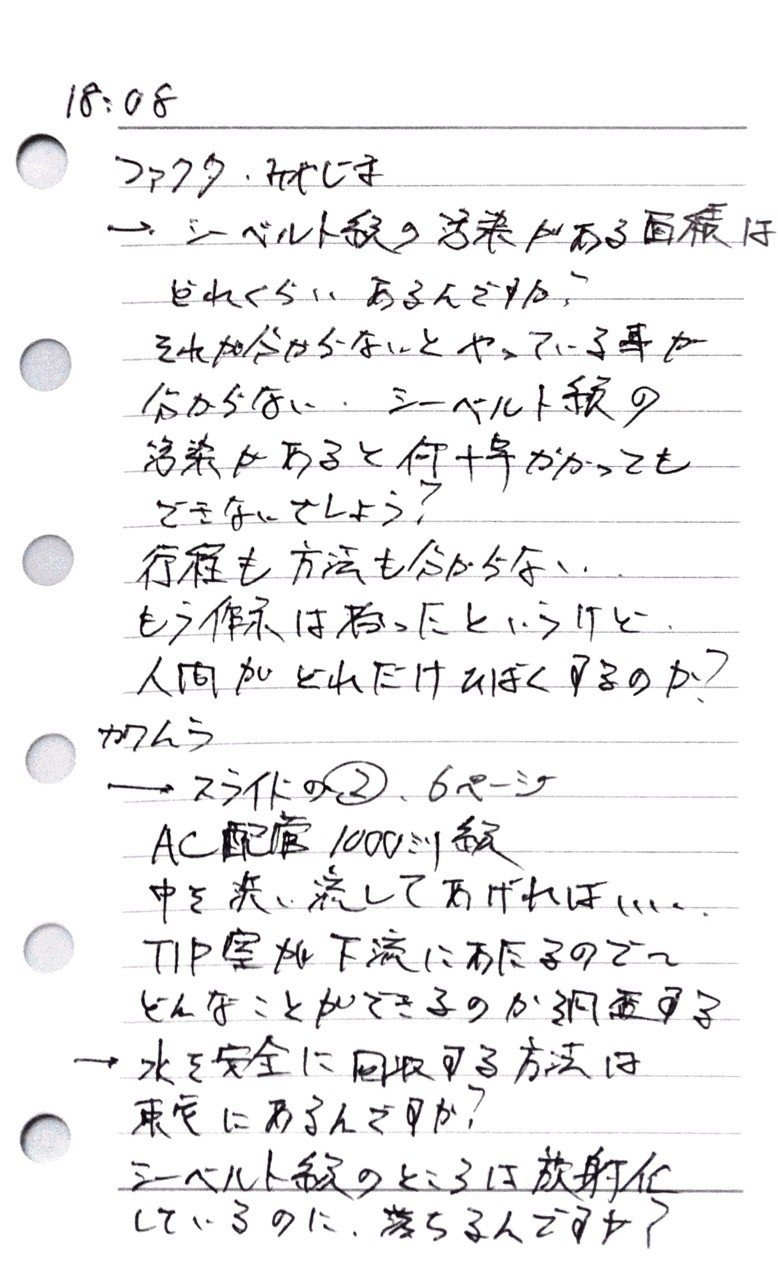 18:08
ファクタ・みやじま
→ シーベルト級の汚染がある面積は
どれくらいあるんですか?
それが分からないとやっている事が
分からない。シーベルト級の
汚染があると何十年かかっても
できないでしょう?
行程も方法も分からない..
もう作業は始まったというけど.
人間がどれだけひばくするのか?
かわんう
→ スライドの②、6ページ
AC配管 1000ミリ級
中を洗い流してあげれば....
TIP室が下流にあたるので〜
どんなことができるのか調査する
→ 水を安全に回収する方法は
東電にあるんですか?
シーベルト級のところは放射化
しているのに、落ちるんですか?